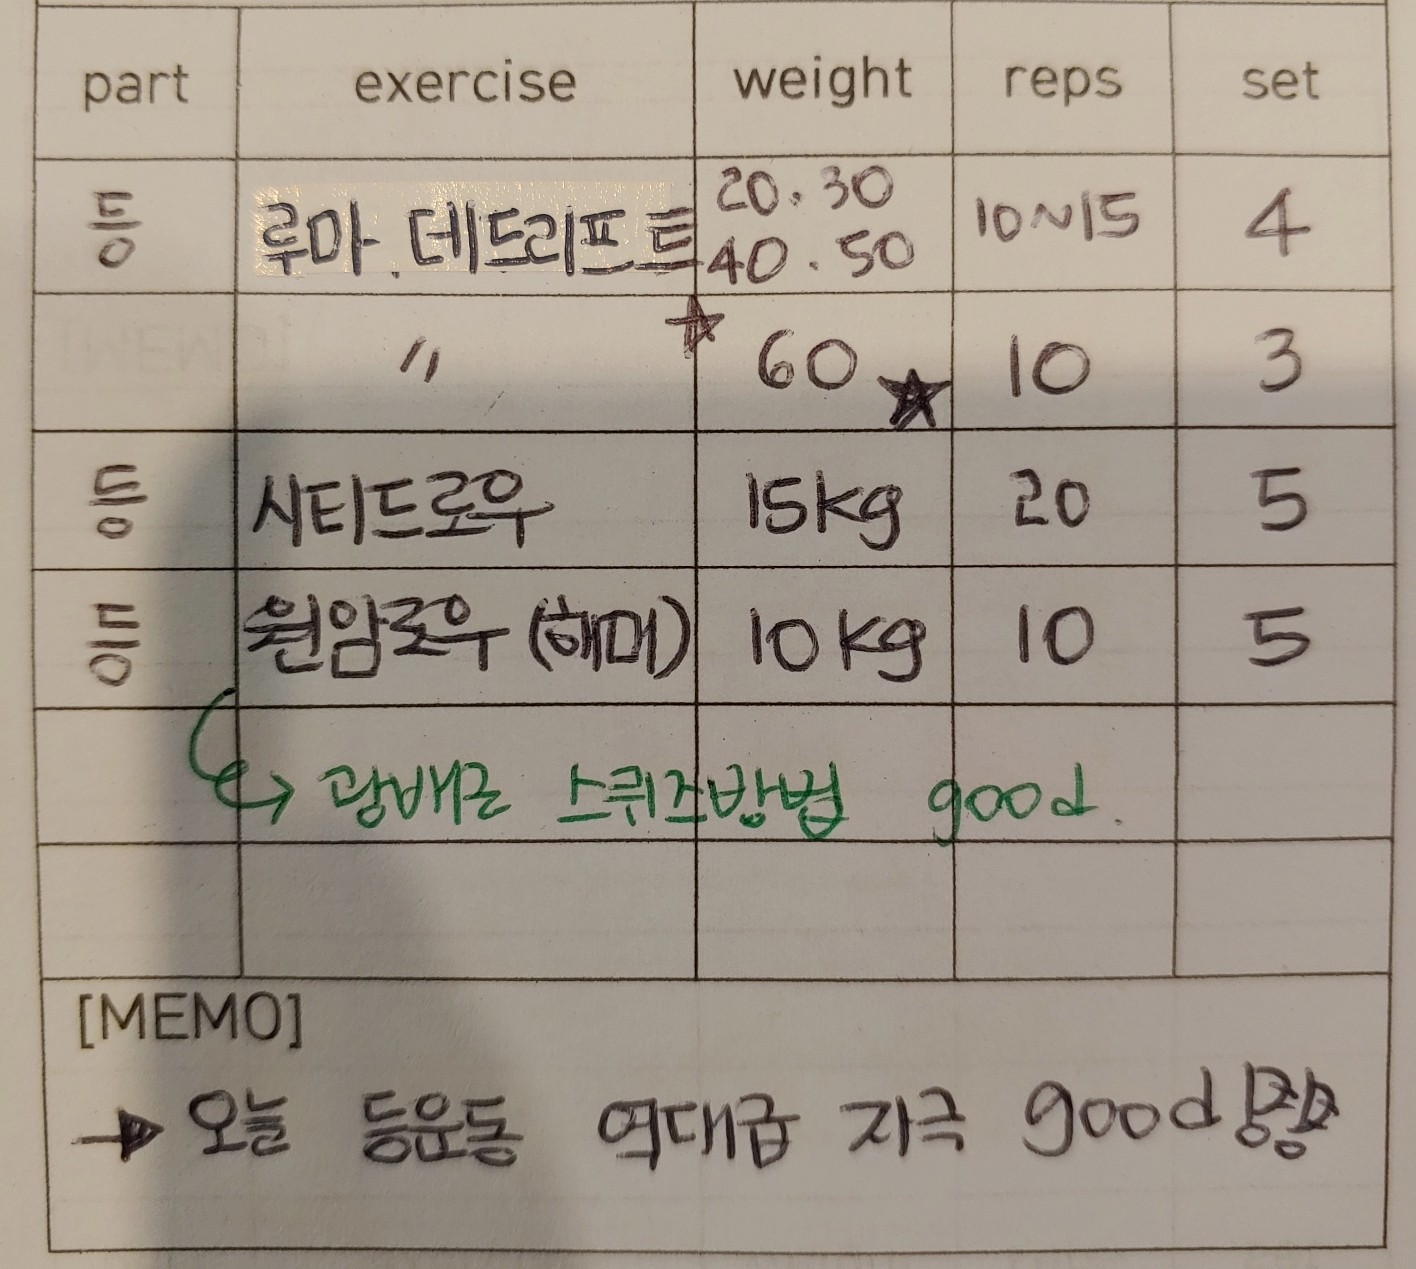 part exercise weight reps set
등 루마. 데드리프트 20. 30 40. 50 10~15 4
〃 60 10 3
등 시티드로우 15kg 20 5
등 원암로우 (해머) 10kg 10 5
광배근 스퀴즈방법 good.
[MEMO]
→ 오늘 등운동 역대급 자극 good